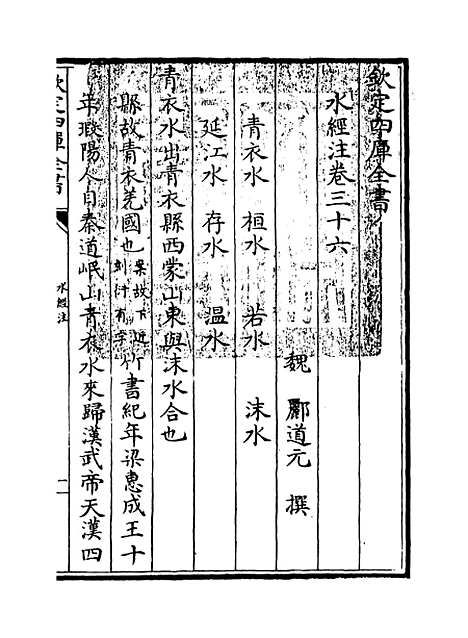 欽定四庫全書
水經注卷三十六
魏 酈道元 撰
青衣水 桓水 若水 沫水
延江水 存水 温水
青衣水出青衣縣西蒙山東與沫水合也
縣故青衣羌國也案故下近刻衍有字竹書紀年梁惠成王十
年瑕陽人自秦道岷山青衣水來歸漢武帝天漢四
欽定四庫全書
水經注